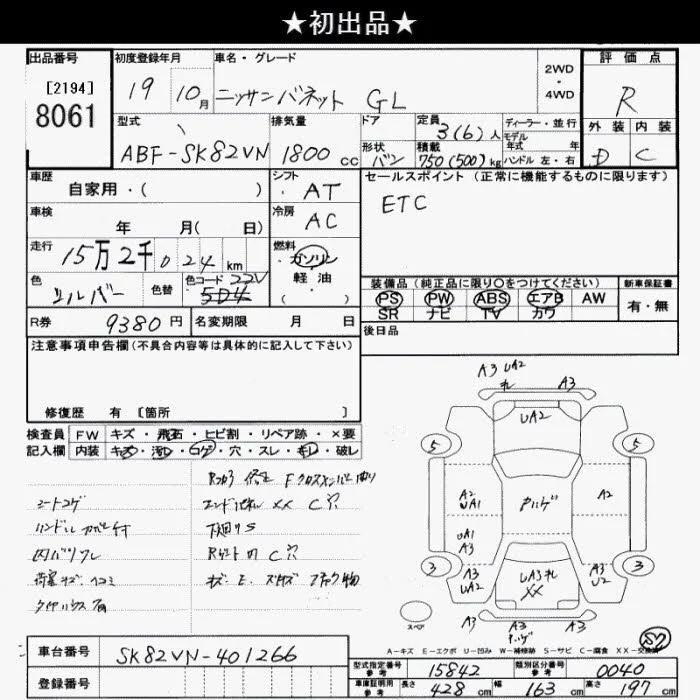 ★初出品★
出品番号
[2194]
8061
初度登録年月
19 10月
車名・グレード
ニッサンバネット GL
2WD
・
4WD
評価点
R
外装 内装
D C
型式
ABF-SK82VN
排気量
1800 cc
ドア
形状
バン
定員
3(6)人
積載
750(500)kg
ディーラー・並行
モデル
年式 年
ハンドル 左・右
車歴
自家用・( )
シフト
AT
車検
年 月( 日)
冷房
AC
走行
15万2千024km
燃料
ガソリン
軽油
( ・ )
色
シルバー
色替
色コード 22V
504
R券
9380円
名変期限 月 日
セールスポイント(正常に機能するものに限ります)
ETC
装備品(純正品に限り○をつけてください)
PS PW ABS エアB AW
SR ナビ TV カワ
新車保証書
有・無
後日品
注意事項申告欄(不具合内容等は具体的に記入して下さい)
修復歴 有 [箇所 ]
検査員 FW キズ・飛石・ヒビ割・リペア跡・×要
記入欄 内装 キズ・汚レ・コゲ・穴・スレ・キレ・破レ
シートコゲ
エンドパネル XX C穴
下廻りS
A3 UA2
A3
UA2
5
5
A2
UA1
ヤハゲ
A2
UA1
A3
3
3
A3
UA2
XX
A3
U2
A3
A3
A3
スペア
S7
A-キズ E-エクボ U-凹み W-補修跡 S-サビ C-腐食 XX-交換済
車台番号
SK82VN-401266
登録番号
型式指定番号
参考
15842
類別区分番号
参考
0040
車庫証明用
参考
長さ 428 cm 幅 163 cm 高さ 197 cm